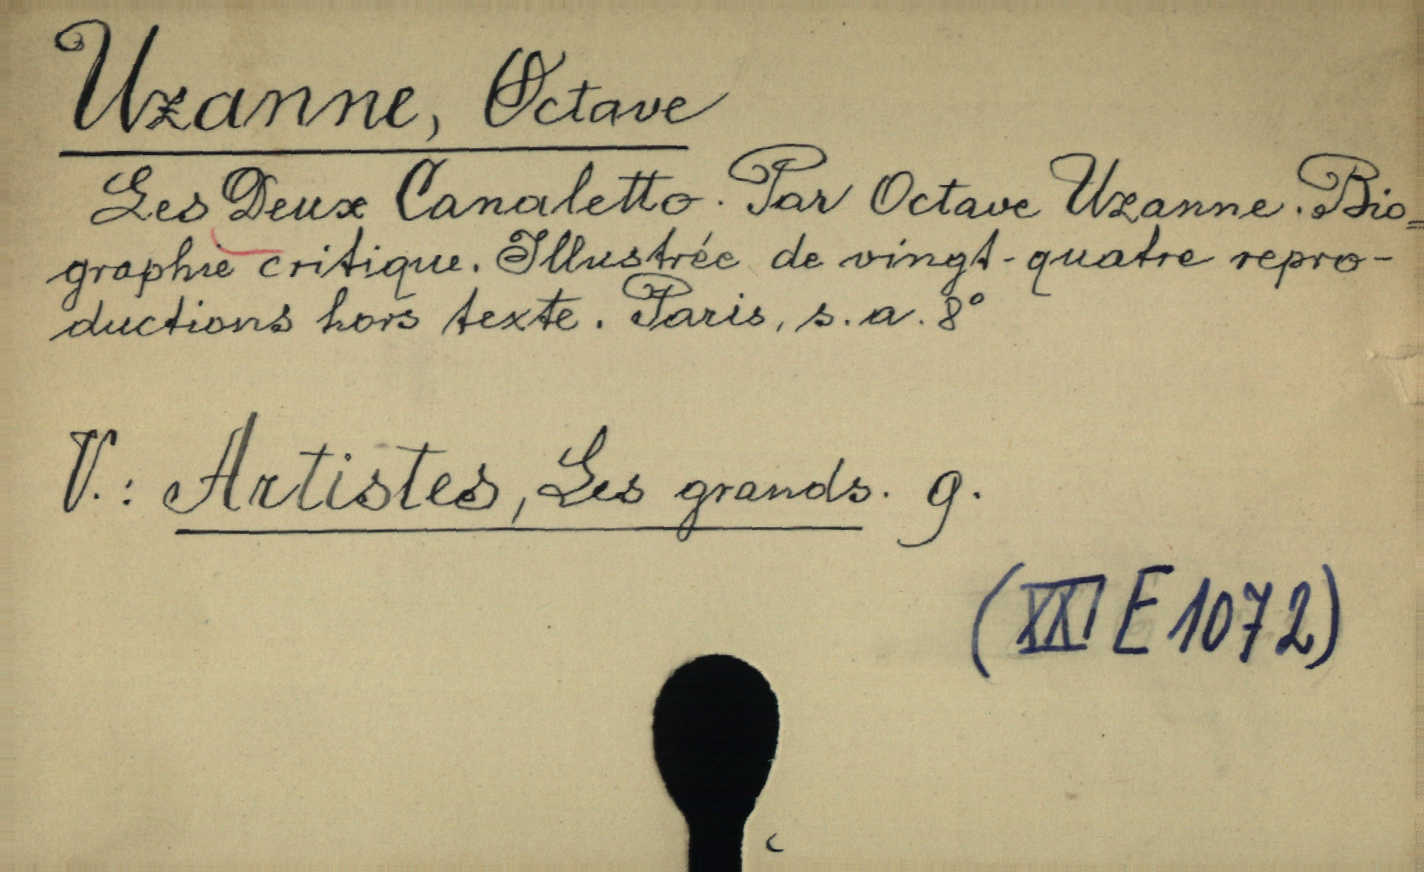 Uzanne, Octave
Les Deux Canaletto. Par Octave Uzanne. Bio=
graphie critique. Illustrée de vingt-quatre repro-
ductions hors texte. Paris, s. a. 8°
V.: Artistes, Les grands. 9.
(XXI E 1072)